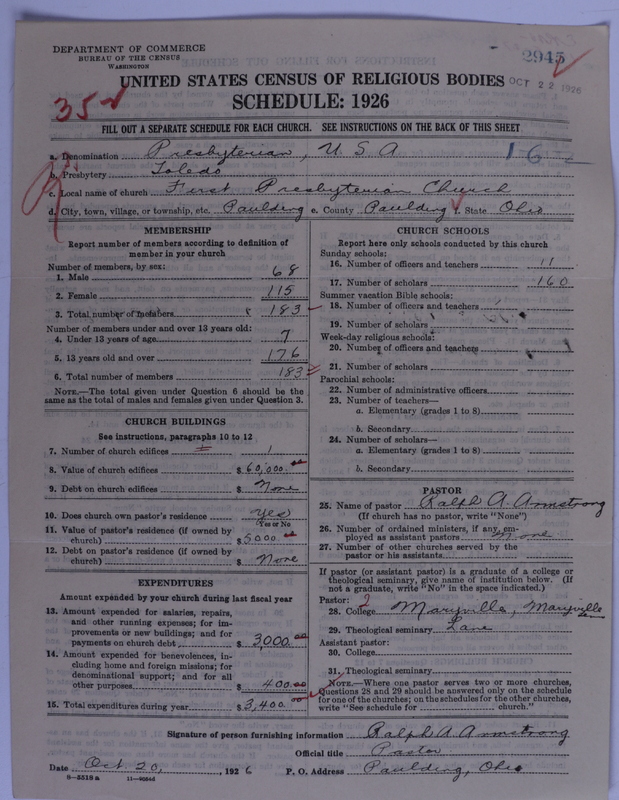 DEPARTMENT OF COMMERCE
BUREAU OF THE CENSUS
WASHINGTON
2945
OCT 22 1926
UNITED STATES CENSUS OF RELIGIOUS BODIES
SCHEDULE: 1926
35
FILL OUT A SEPARATE SCHEDULE FOR EACH CHURCH. SEE INSTRUCTIONS ON THE BACK OF THIS SHEET
a. Denomination Presbyterian, U S A
16
b. Presbytery Toledo
c. Local name of church First Presbyterian Church
d. City, town, village, or township, etc. Paulding e. County Paulding f. State Ohio
MEMBERSHIP
Report number of members according to definition of
member in your church
Number of members, by sex:
1. Male 68
2. Female 115
3. Total number of members 183
Number of members under and over 13 years old:
4. Under 13 years of age 7
5. 13 years old and over 176
6. Total number of members 183
NOTE.—The total given under Question 6 should be the
same as the total of males and females given under Question 3.
CHURCH BUILDINGS
See instructions, paragraphs 10 to 12
7. Number of church edifices 1
8. Value of church edifices $60,000.00
9. Debt on church edifices $ None
10. Does church own pastor's residence Yes
(Yes or No
11. Value of pastor's residence (if owned by
church) $5000.00
12. Debt on pastor's residence (if owned by
church) $ None
EXPENDITURES
Amount expended by your church during last fiscal year
13. Amount expended for salaries, repairs,
and other running expenses; for im-
provements or new buildings; and for
payments on church debt $ 3000.00
14. Amount expended for benevolences, in-
cluding home and foreign missions; for
denominational support; and for all
other purposes $ 400.00
15. Total expenditures during year $3,400.00
CHURCH SCHOOLS
Report here only schools conducted by this church
Sunday schools:
16. Number of officers and teachers 11
17. Number of scholars 160
Summer vacation Bible schools:
18. Number of officers and teachers
19. Number of scholars
Week-day religious schools:
20. Number of officers and teachers
21. Number of scholars
Parochial schools:
22. Number of administrative officers
23. Number of teachers—
a. Elementary (grades 1 to 8)
b. Secondary
24. Number of scholars—
a. Elementary (grades 1 to 8)
b. Secondary
PASTOR
25. Name of pastor Ralph A. Armstrong
(If church has no pastor, write "None")
26. Number of ordained ministers, if any, em-
ployed as assistant pastors None
27. Number of other churches served by the
pastor or his assistants
If pastor (or assistant pastor) is a graduate of a college or
theological seminary, give name of institution below. (If
not a graduate, write "No" in the space indicated.)
Pastor: 2
28. College Maryville, Maryville
29. Theological seminary Lane
Assistant pastor:
30. College
31. Theological seminary
NOTE.—Where one pastor serves two or more churches,
Questions 28 and 29 should be answered only on the schedule
for one of the churches; on the schedules for the other churches,
write "See schedule for church."
Signature of person furnishing information Ralph A. Armstrong
Official title Pastor
Date Oct 20, 1926 P. O. Address Paulding, Ohio
8-5518 a